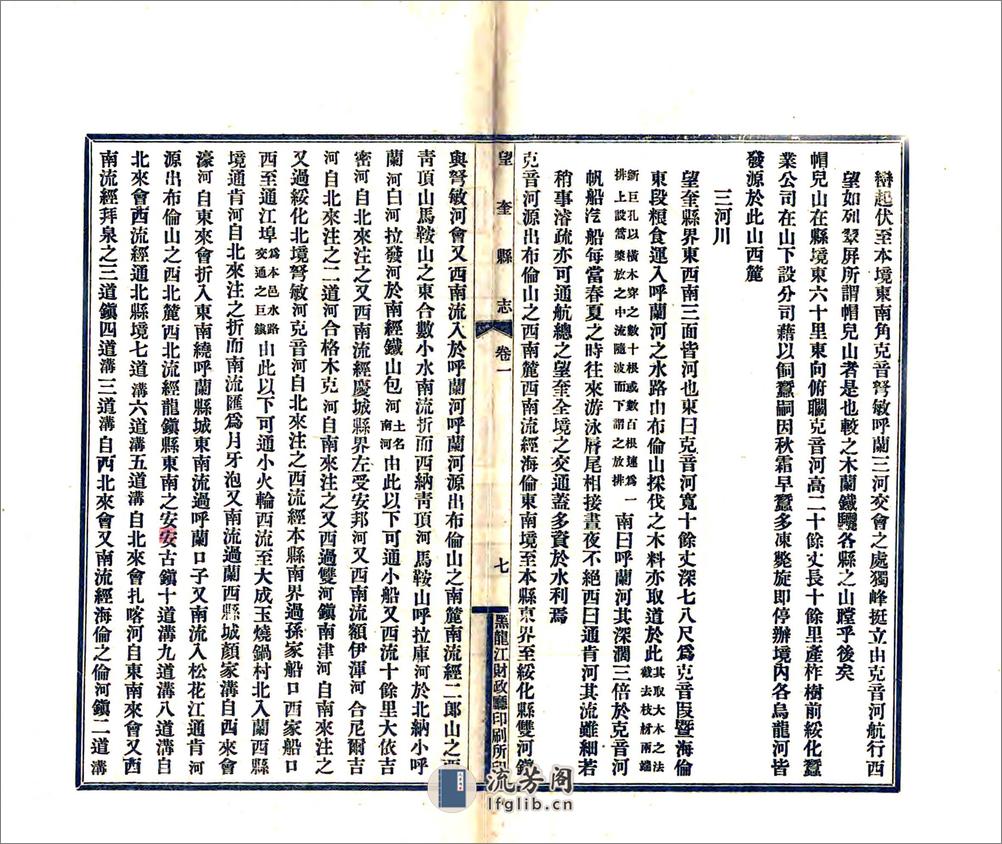 巒起伏至本境東南角克音弩敏呼蘭三河交會之處獨峰挺立由克音河航行西
望如列翠屏所謂帽兒山者是也較之木蘭鐵驪各縣之山瞠乎後矣
帽兒山在縣境東六十里東向俯瞰克音河高二十餘丈長十餘里產柞樹前綏化蠶
業公司在山下設分司藉以飼蠶嗣因秋霜早蠶多凍斃旋即停辦境內各烏龍河皆
發源於此山西麓
三河川
望奎縣界東西南三面皆河也東曰克音河寬十餘丈深七八尺爲克音段暨海倫
東段粮食運入呼蘭河之水路由布倫山採伐之木料亦取道於此其取大木之法截去枝枒兩端
新巨孔以橫木穿之數十根或數百根連爲排上設篙槳放之中流隨波而下謂之放排一南曰呼蘭河其深濶三倍於克音河
帆船汽船每當春夏之時往來游泳脣尾相接晝夜不絕西曰通肯河其流雖細若
稍事濬疏亦可通航總之望奎全境之交通蓋多資於水利焉
克音河源出布倫山之西南麓西南流經海倫東南境至本縣東界至綏化縣雙河鎮
望奎縣志 卷一 七 黑龍江財政廳印刷所印
與弩敏河會又西南流入於呼蘭河呼蘭河源出布倫山之南麓南流經二郎山之西
靑頂山馬鞍山之東合數小水南流折而西納靑頂河馬鞍山呼拉庫河於北納小呼
蘭河白河拉發河於南經鐵山包河土名南河由此以下可通小船又西流十餘里大依吉
密河自北來注之又西南流經慶城縣界左受安邦河又西南流額伊渾河合尼爾吉
河自北來注之二道河合格木克河自南來注之又西過雙河鎮南津河自南來注之
又過綏化北境弩敏河克音河自北來注之西流經本縣南界過孫家船口西家船口
西至通江埠爲本邑水路交通之巨鎮由此以下可通小火輪西流至大成玉燒鍋村北入蘭西縣
境通肯河自北來注之折而南流匯爲月牙泡又南流過蘭西縣城顏家溝自西來會
濠河自東來會折入東南繞呼蘭縣城東南流過呼蘭口子又南流入松花江通肯河
源出布倫山之西北麓西北流經龍鎮縣東南之安安古鎮十道溝九道溝八道溝自
北來會西流經通北縣境七道溝六道溝五道溝自北來會扎喀河自東南來會又西
南流經拜泉之三道鎮四道溝三道溝自西北來會又南流經海倫之倫河鎮二道溝
流芳阁
lfglib.cn